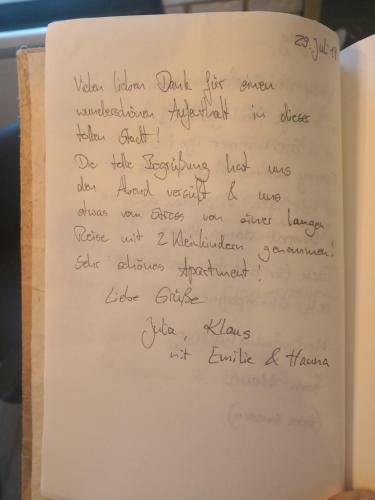 29. Juli 17
Vielen lieben Dank für einen
wunderschönen Aufenthalt in dieser
tollen Stadt!
Die tolle Begrüßung hat uns
den Abend versüßt & uns
etwas vom Stress von einer langen
Reise mit 2 Kleinkindern genommen!
Sehr schönes Apartment!
Liebe Grüße
Julia, Klaus
mit Emilie & Hanna